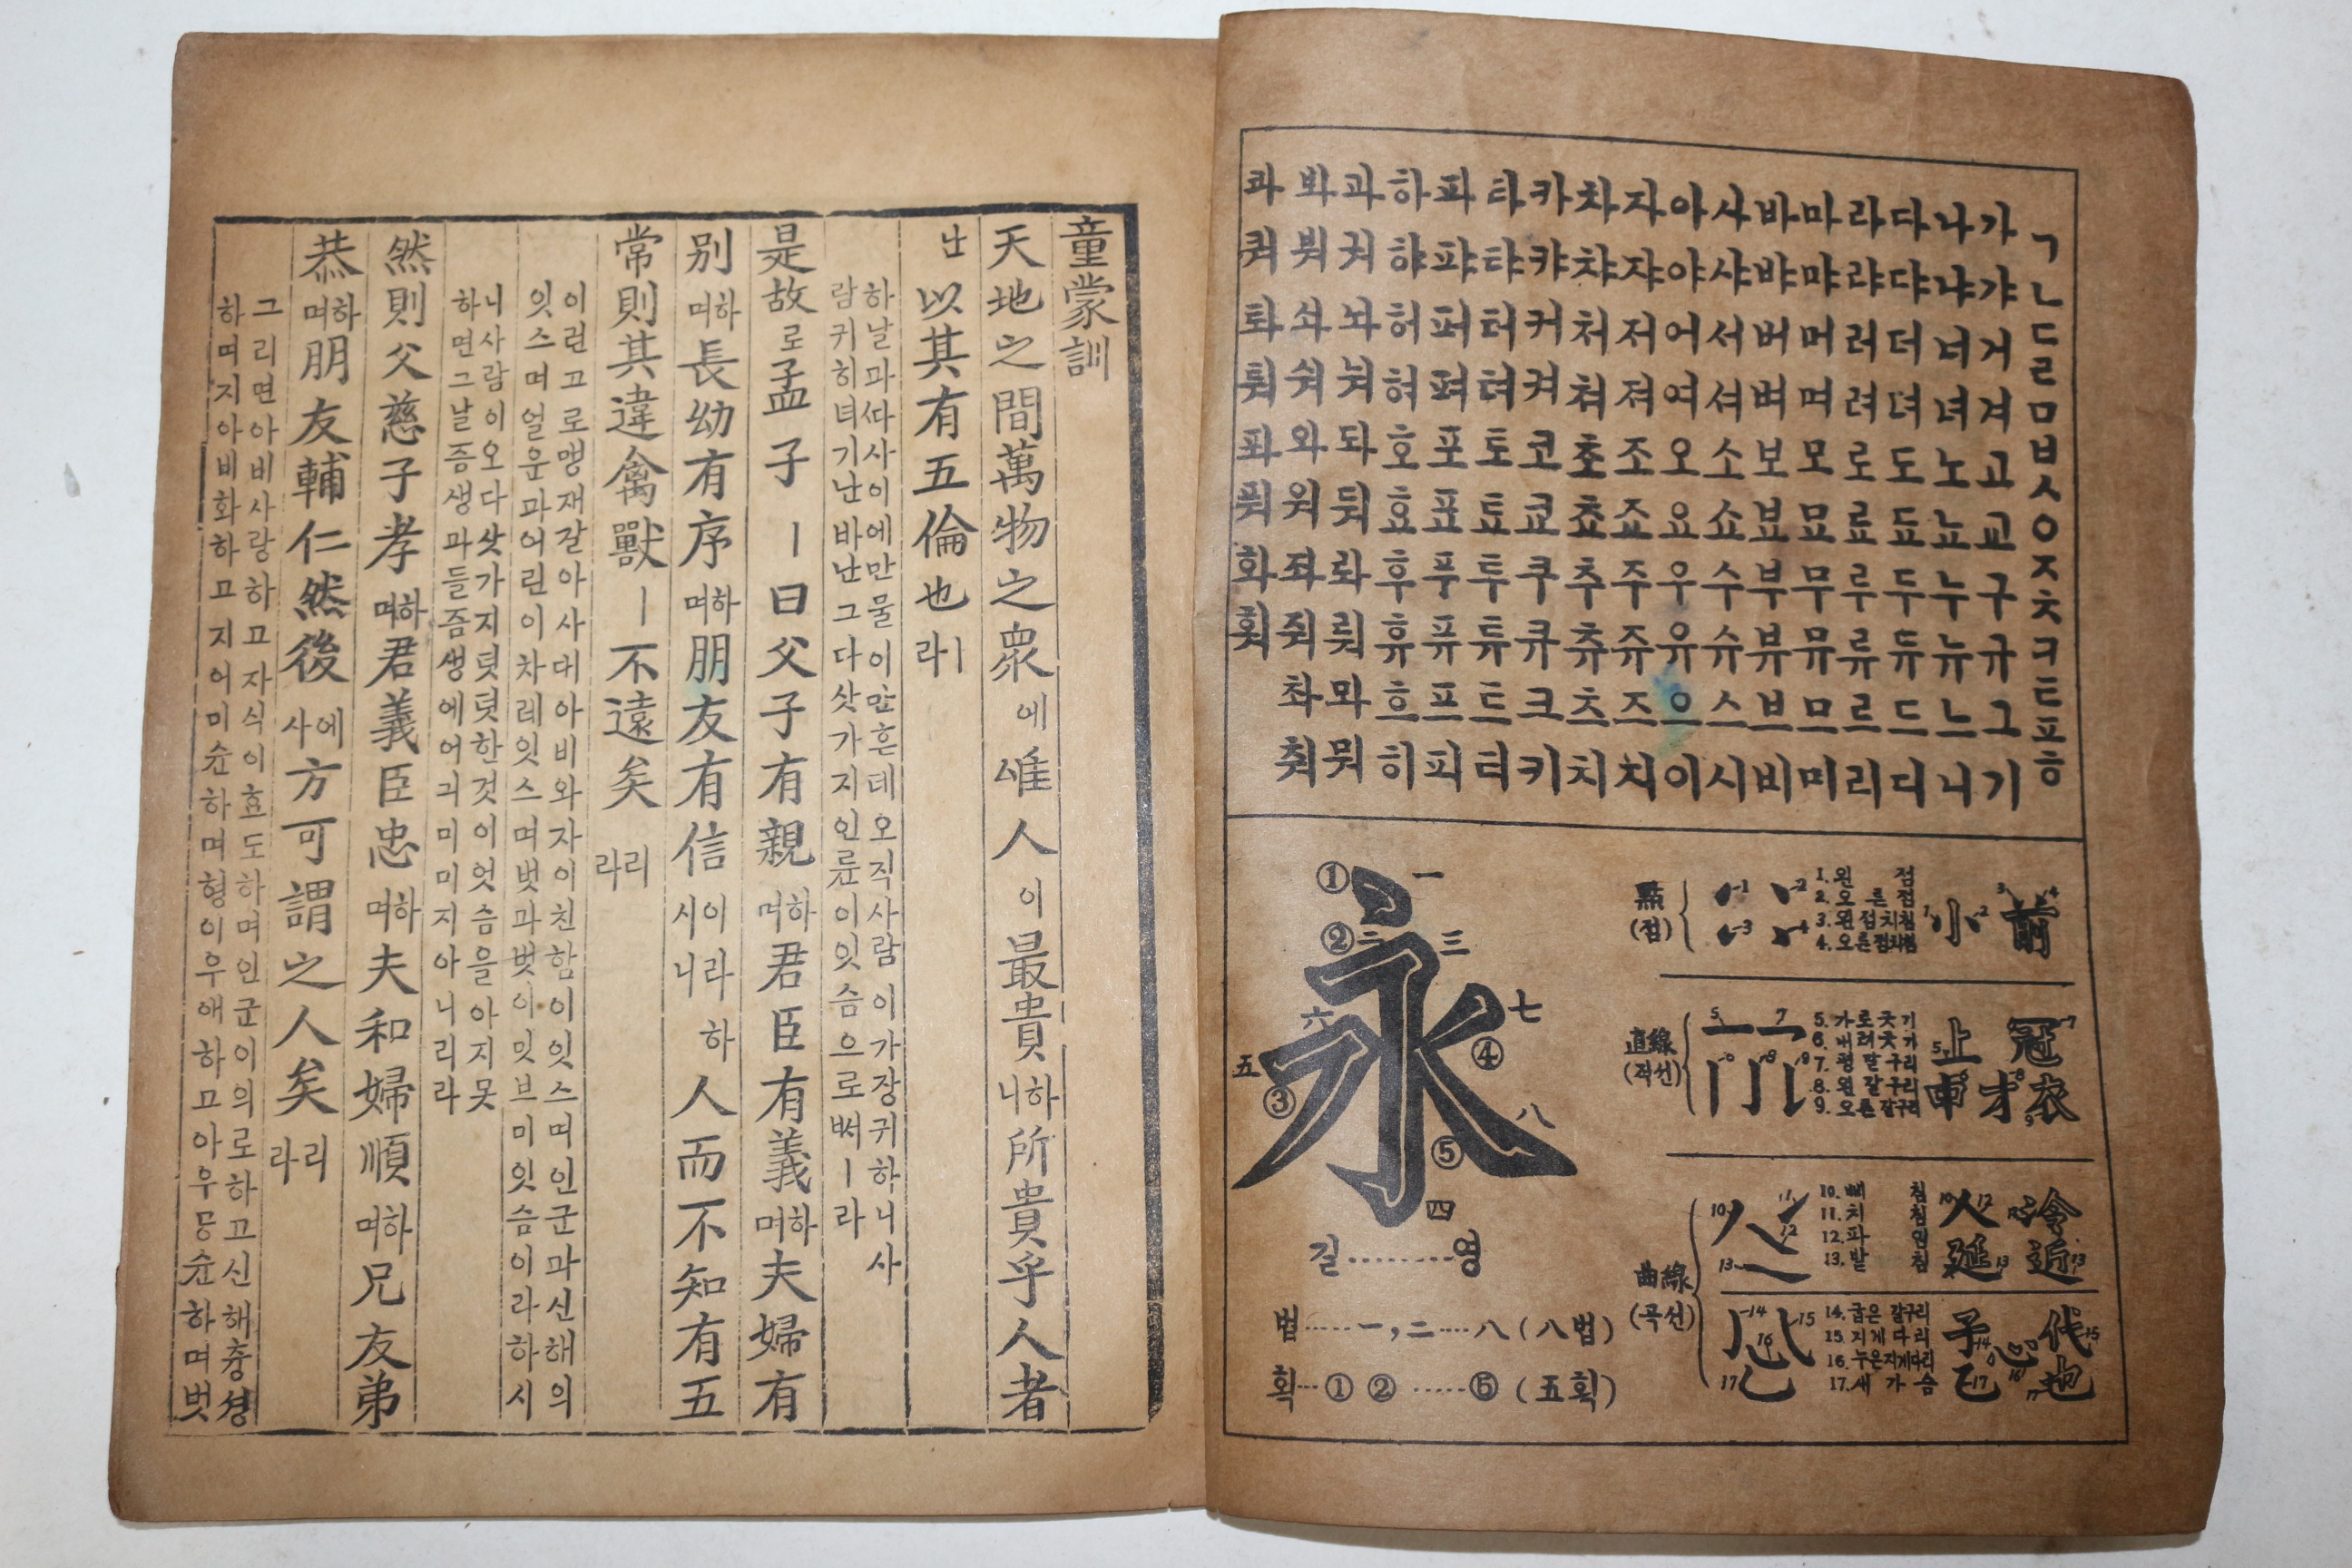 ㄱㄴㄷㄹㅁㅂㅅㅇㅈㅊㅋㅌㅍㅎ
가갸거겨고교구규그기
나냐너녀노뇨누뉴느니
다댜더뎌도됴두듀드디
라랴러려로료루류르리
마먀머며모묘무뮤므미
바뱌버벼보뵤부뷰브비
사샤서셔소쇼수슈스시
아야어여오요우유으이
자쟈저져조죠주쥬즈지
차챠처쳐초쵸추츄츠치
카캬커켜코쿄쿠큐크키
타탸터텨토툐투튜트티
파퍄퍼펴포표푸퓨프피
하햐허혀호효후휴흐히
과궈놔눠돠둬롸뤄뫄뭐
봐붜솨숴와워좌줘촤춰
콰쿼톼퉈퐈풔화훠
永
① ② ③ ④ ⑤
一 二 三 四 五 六 七 八
길………영
법……一,二……八(八법)
획…① ②……⑤(五획)
點(점)
1 2 3 4
1. 왼 점
2. 오른점
3. 왼점치침
4. 오른점치침
小 前
直線(직선)
5 6 7 8 9
5. 가로긋기
6. 내려긋기
7. 평갈구리
8. 왼갈구리
9. 오른갈구리
上 冠
中 才 衣
曲線(곡선)
10 11 12 13
10. 삐침
11. 치침
12. 파임
13. 받침
人 冷
延 近
14 15 16 17
14. 굽은갈구리
15. 지게다리
16. 누은지게다리
17. 새가슴
子 心 代
己 也
童蒙訓
天地之間萬物之衆에唯人이最貴하니所貴乎人者
난以其有五倫也ㅣ라
하날과ᄯᅡ사이에만물이만흔데오직사람이가장귀하니사
람귀히녀기난바난그다삿가지인륜이잇슴으로써ㅣ라
是故로孟子ㅣ曰父子有親하며君臣有義하며夫婦有
別하며長幼有序하며朋友有信이라하시니人而不知有五
常則其違禽獸ㅣ不遠矣리라
이런고로맹재갈아사대아비와자이친함이잇스며인군과신해의
잇스며얼운과어린이차레잇스며벗과벗이밋브미잇슴이라하시
니사람이오다삿가지덧덧한것이엇슴을아지못
하면그날즘생과들즘생에어긔미미지아니리라
然則父慈子孝하며君義臣忠하며夫和婦順하며兄友弟
恭하며朋友輔仁然後에사方可謂之人矣리라
그리면아비사랑하고자식이효도하며인군이의로하고신해충셩
하며지아비화하고지어미슌하며형이우애하고아우공슌하며벗